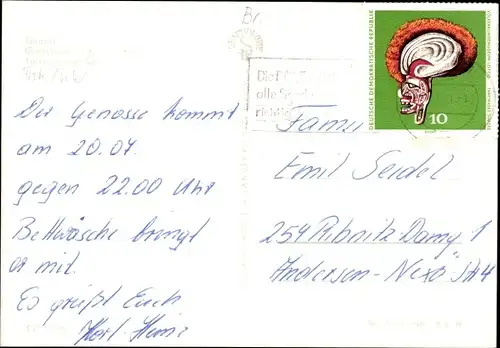 Der Genosse kommt
am 20.07.
gegen 22.00 Uhr
Bettwäsche bringt
er mit.
Es grüßt Euch
Karl-Heinz
Emil Seidel
254 Ribnitz-Damg 1
Andersen-Nexö Str 4
DEUTSCHE DEMOKRATISCHE REPUBLIK
10